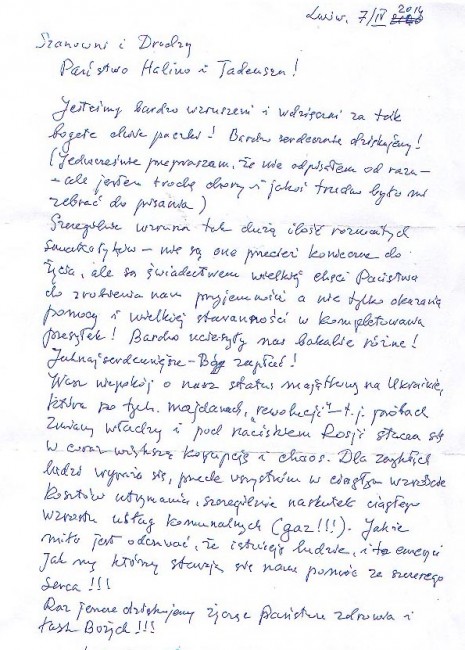 Lwiw, 7/IV 2014
Szanowni i Drodzy
Państwo Halino i Tadeuszu!
Jesteśmy bardzo wzruszeni i wdzięczni za tak
bogate dwie paczki! Bardzo serdecznie dziękujemy!
(Jednocześnie przepraszam, że nie odpisałem od razu -
- ale jestem trochę chory i jakoś trudno było mi
zebrać do pisania)
Szczególnie wzrusza tak duża ilość rozmaitych
smakołyków - nie są one przecież konieczne do
życia, ale są świadectwem wielkiej chęci Państwa
do zrobienia nam przyjemności a nie tylko okazania
pomocy i wielkiej staranności w kompletowaniu
przesyłek! Bardzo ucieszyły nas bakalie różne!
Jaknajserdeczniejsze - Bóg zapłać!
Wasz niepokój o nasz status majątkowy na Ukrainie,
która po tych majdanach, "rewolucji" - t.j. próbach
zmiany władzy i pod naciskiem Rosji stacza się
w coraz większą korupcję i chaos. Dla zwykłych
ludzi wyraża się, przede wszystkim w ciągłym wzroście
kosztów utrzymania, szczególnie naskutek ciągłego
wzrostu usług komunalnych (gaz!!!). Jakie
miłe jest odczuwać, że istnieją ludzie, i to
jak my którzy starają się nam pomóc ze szczerego
serca!!!
Raz jeszcze dziękujemy życząc państwu zdrowia i
łask Bożych!!!